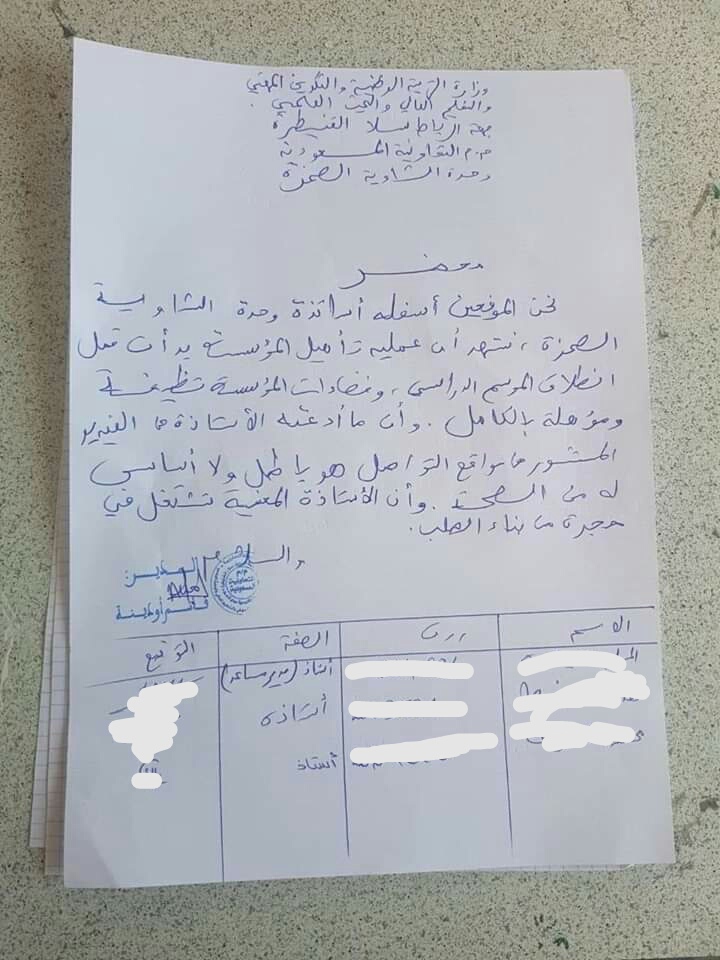 وزارة التربية الوطنية والتكوين المهني
والتعليم العالي والبحث العلمي.
جهة الرباط سلا القنيطرة
م.م التعاونية المسعودية
وحدة الشاوية الصخرة
محضر
نحن الموقعين أسفله أساتذة وحدة الشاوية
الصخرة، نشهد أن عملية تأهيل المؤسسة بدأت قبل
انطلاق الموسم الدراسي، وفضاءات المؤسسة نظيفة
ومؤهلة بالكامل. وأن ما ادعته الأستاذة في الفيديو
المنشور في مواقع التواصل هو باطل ولا أساس
له من الصحة. وأن الأستاذة المعنية تشتغل في
حجرة من بناء صلب.
والسلام
المدير
الاسم ر.ت الصفة التوقيع
أستاذ (مدير مساعد)
أستاذة
أستاذ